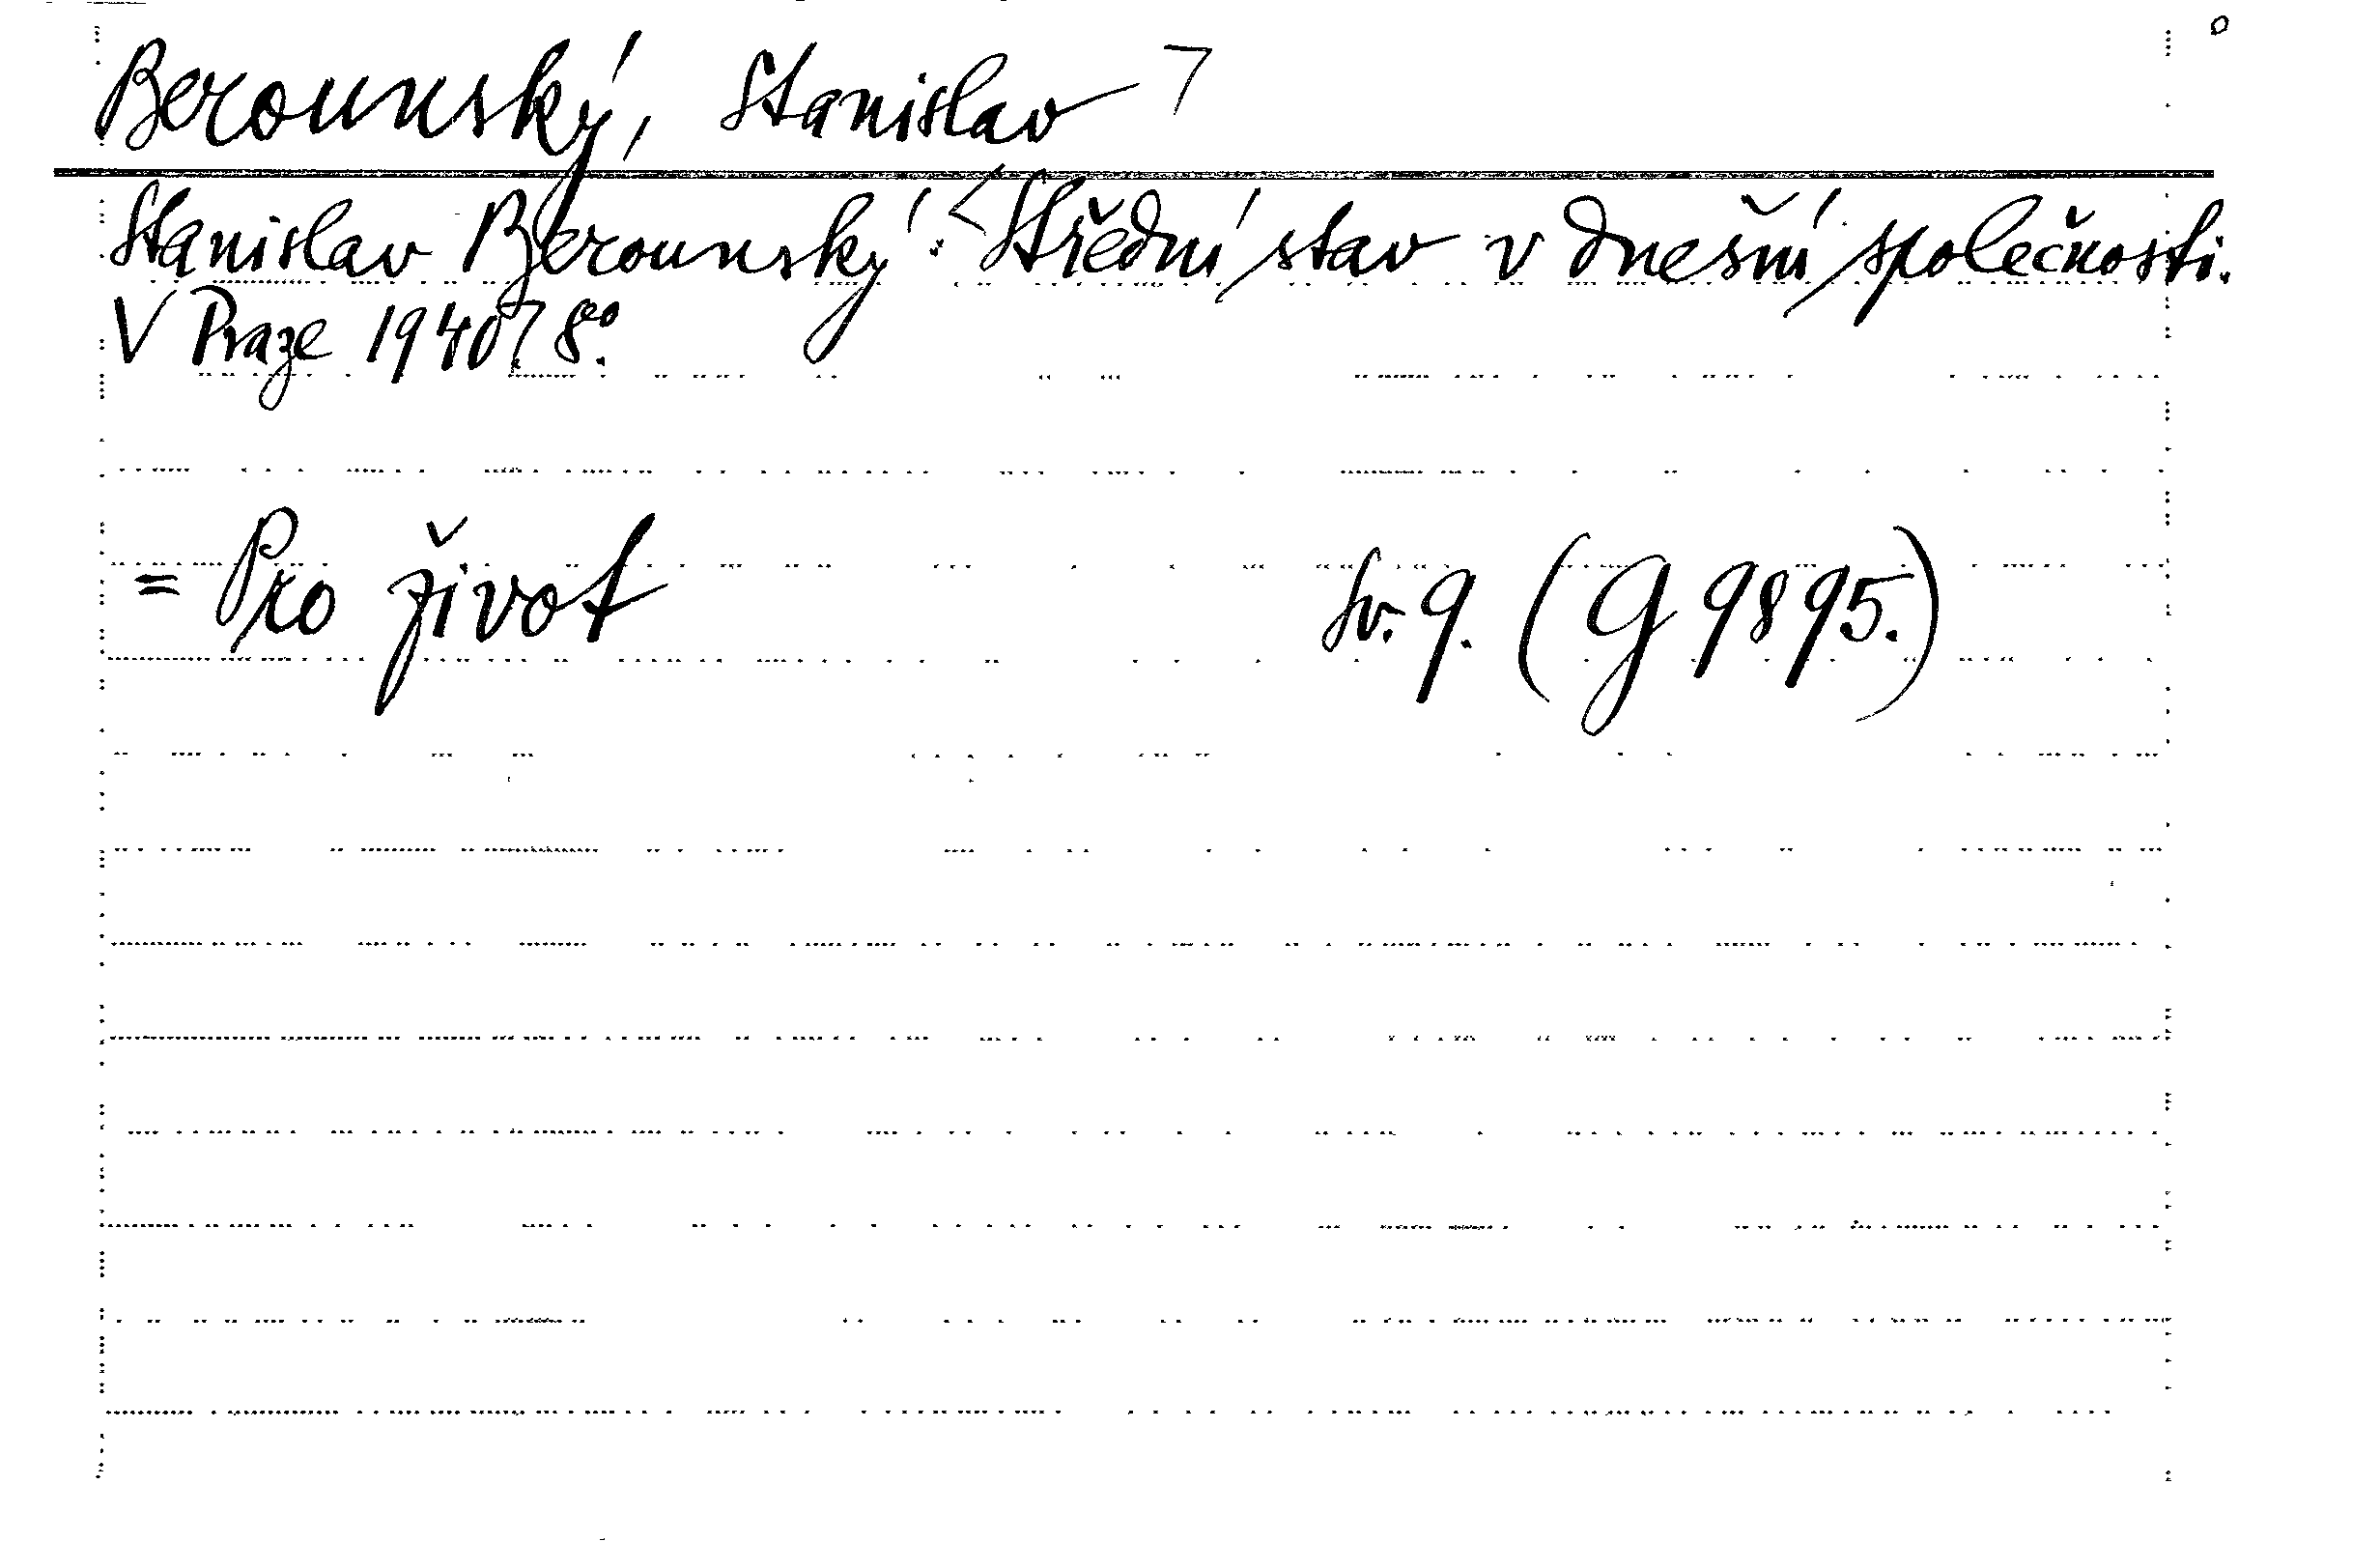 Berounský, Stanislav
Stanislav Berounský: Střední stav v dnešní společnosti.
V Praze 1940 8º.
= Pro život sv. 9. (G 9895.)